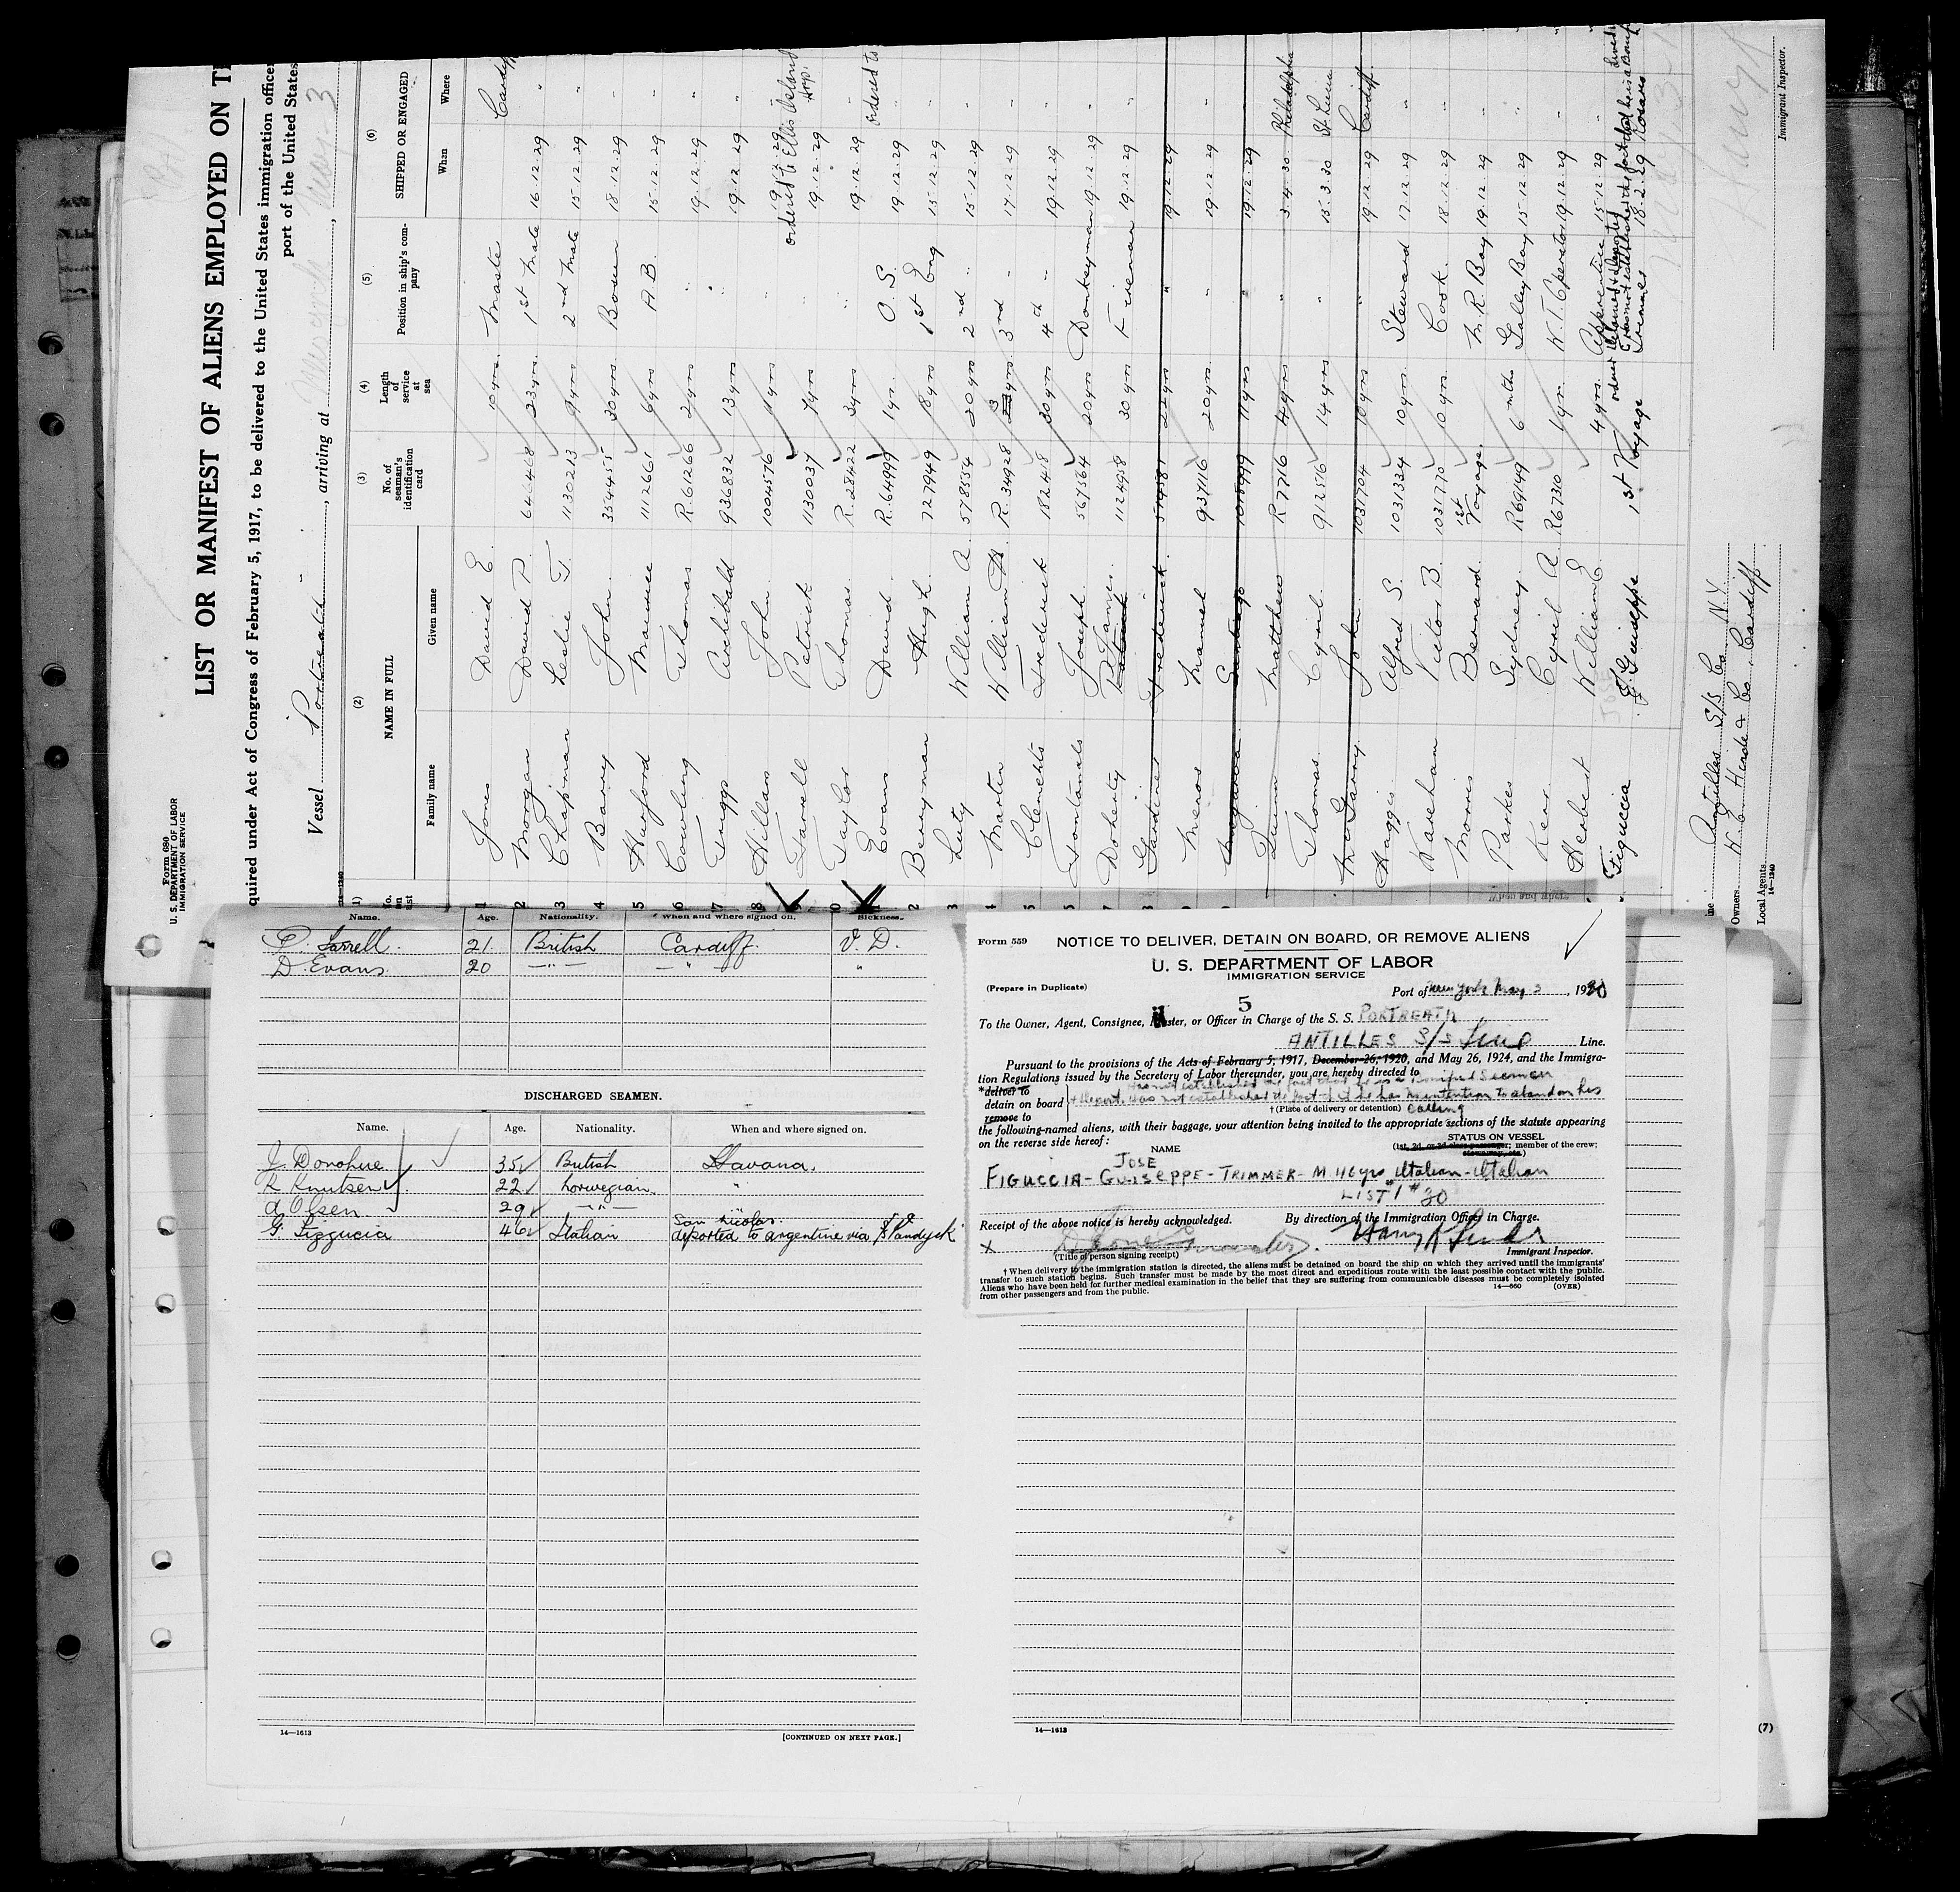 Form 680
U. S. DEPARTMENT OF LABOR
IMMIGRATION SERVICE
LIST OR MANIFEST OF ALIENS EMPLOYED ON T
quired under Act of Congress of February 5, 1917, to be delivered to the United States immigration office
port of the United States
Vessel Portreath, arriving at New York May 3
(2) NAME IN FULL
Family name Given name
(3) No. of seaman's identification card
(4) Length of service at sea
(5) Position in ship's company
(6) SHIPPED OR ENGAGED
When Where
1 Jones David E. 10 yrs Maste Cardiff
2 Morgan David P. 23 yrs 1st Mate 16.12.29 "
3 Chapman Leslie T. 1130213 9 yrs 2nd Mate 15.12.29 "
4 Barry John 354455 30 yrs Bosun 18.12.29 "
5 Hurford Maurice 1112661 6 yrs A B. 15.12.29 "
6 Cowling Thomas R.61266 2 yrs " 19.12.29 "
7 Tuggs Archibald 936832 13 yrs " 19.12.29 "
8 Hillan John 1004576 " 19.12.29
Farrell Patrick 1130037 19.12.29
ordered to Ellis Island Hosp.
Taylor Thomas R.28422 3 yrs " 19.12.29 "
Evans David R.64999 1 yr. O. S. 19.12.29 "
ordered to
Berryman Hugh L. 727949 8 yrs 1st Eng 15.12.29 "
Luty William A. 578554 20 yrs 2nd " 15.12.29 "
Marten William H. R.34928 3 yrs 3rd " 17.12.29 "
Clenchts Frederick 182418 30 yrs 4th " 19.12.29 "
Joseph 567564 20 yrs Donkeyman 19.12.29 "
Doherty P. James 1124958 30 yrs Fireman 19.12.29 "
Gardiner Frederick 22 yrs " 19.12.29
Meros Manuel 937116 20 yrs. " 19.12.29
Santiago 11 yrs " 19.12.29
Dunn Matthew R7716 4 yrs " 3.4.30 Philadelphia
Thomas Cyril 912576 14 yrs " 15.3.30 St. Lucia
McGarry John 1031704 10 yrs " 19.12.29 Cardiff
Haggis Alfred S. 1031334 10 yrs. Steward 17.12.29 "
Wareham Victor B. 1031770 10 yrs. Cook 18.12.29 "
Morris Bernard 1st Voyage. M. R Boy 19.12.29 "
Parkes Sydney R69149 6 mths Galley Boy 15.12.29 "
Kerr Cyril A. R67310 1 yr. W. T. Operator 19.12.29 "
Herbert William E. 4 yrs. Apprentice 15.12.29 "
Figuccia Guiseppe 1st Voyage Trimmer 18.2.29 Rosario
Antilles S/S Co N.Y.
Owners W. E. Hinde & Co. Cardiff
Local Agents
14—1240
Immigrant Inspector.
Name. Age. Nationality. When and where signed on. Sickness.
P. Farrell. 21. British Cardiff. V. D.
D. Evans. 20 —"— —"— "
DISCHARGED SEAMEN.
Name. Age. Nationality. When and where signed on.
J. Donohue 35 British Havana.
R Knutsen 22 Norwegian. "
A Olsen 29 —"— "
G. Figgucia 46 Italian San Nicolas
deported to argentine via SS Vandyck
14—1613 [CONTINUED ON NEXT PAGE.]
Form 559 NOTICE TO DELIVER, DETAIN ON BOARD, OR REMOVE ALIENS
U. S. DEPARTMENT OF LABOR
IMMIGRATION SERVICE
(Prepare in Duplicate)
Port of New York May 3, 1930
5
To the Owner, Agent, Consignee, Master, or Officer in Charge of the S. S. PORTREATH
ANTILLES S/S Line Line.
Pursuant to the provisions of the Acts of February 5, 1917, December 26, 1920, and May 26, 1924, and the Immigra-
tion Regulations issued by the Secretary of Labor thereunder, you are hereby directed to
*deliver to has not established the fact that he is a bonified Seaman
detain on board + deport. Has not established the fact that he has no intention to abandon his
remove to † (Place of delivery or detention) calling
the following-named aliens, with their baggage, your attention being invited to the appropriate sections of the statute appearing
on the reverse side hereof:
NAME STATUS ON VESSEL
(1st, 2d, or 3d class passenger; member of the crew;
stowaway, etc.)
JOSE
FIGUCCIA - GUISEPPE - TRIMMER - M 46 yrs Italian - Italian
LIST #1 #30
Receipt of the above notice is hereby acknowledged. By direction of the Immigration Officer in Charge.
X D Jones Master.
(Title of person signing receipt) Immigrant Inspector.
† When delivery to the immigration station is directed, the aliens must be detained on board the ship on which they arrived until the immigrants'
transfer to such station begins. Such transfer must be made by the most direct and expeditious route with the least possible contact with the public.
Aliens who have been held for further medical examination in the belief that they are suffering from communicable diseases must be completely isolated
from other passengers and from the public. 14—660 (OVER)
14—1613
(7)